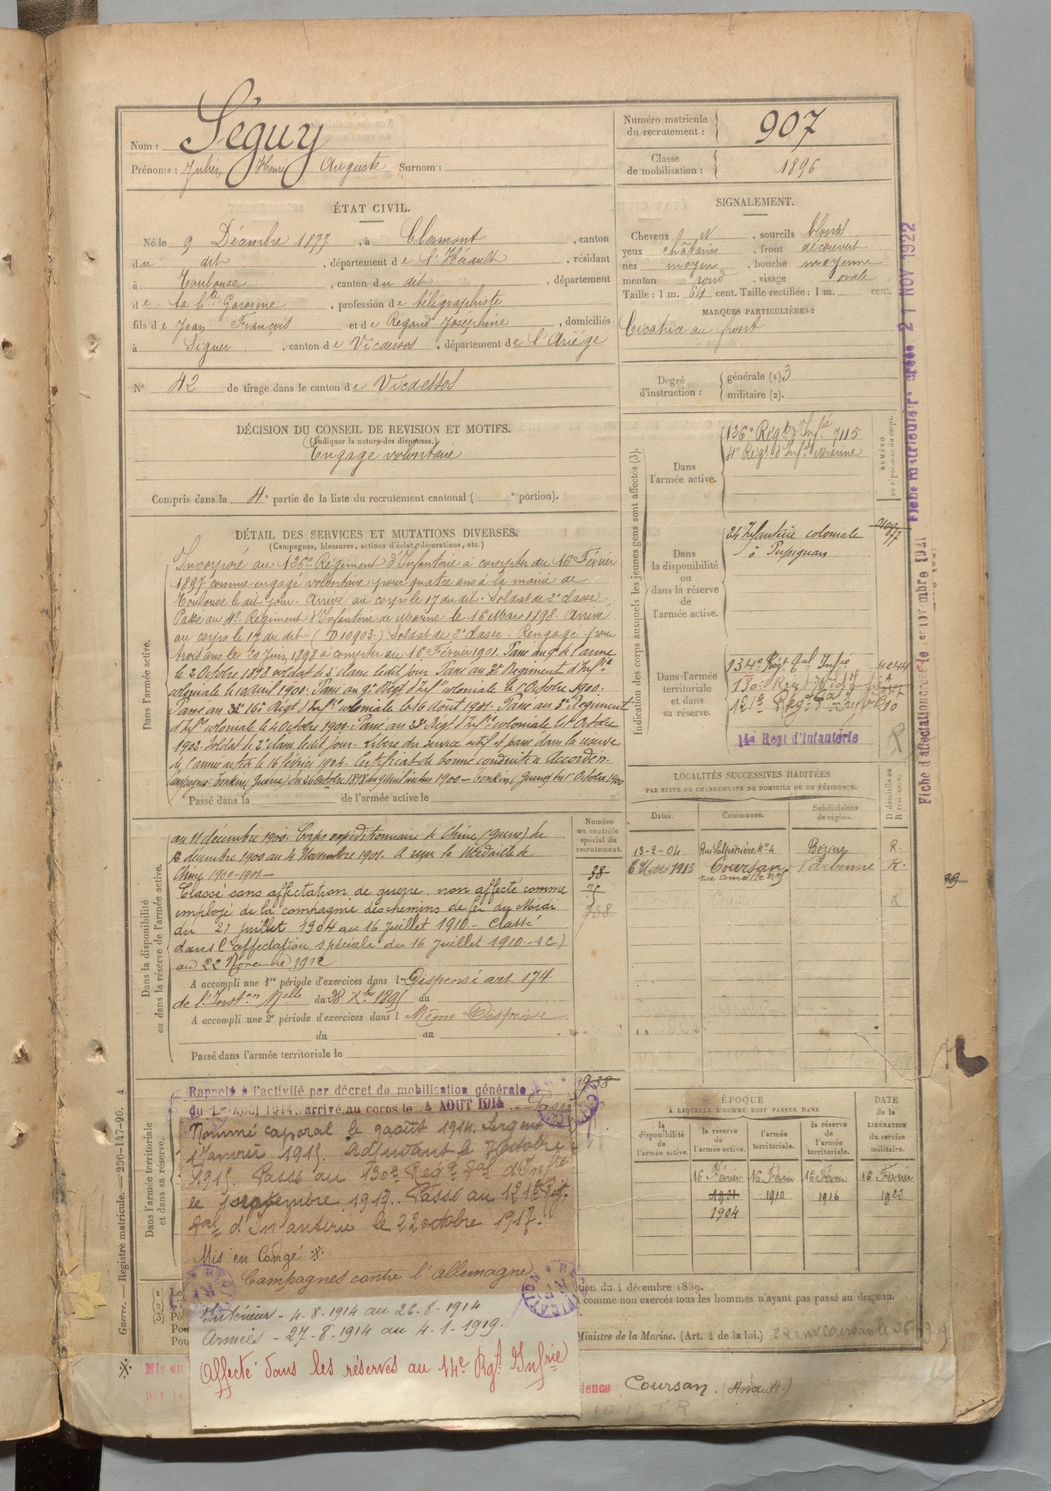 Nom : Séguy
Prénoms : Julien Henri Auguste Surnom :
Numéro matricule du recrutement : 907
Classe de mobilisation : 1896
ÉTAT CIVIL.
Né le 9 Décembre 1877, à Clermont, canton
du dit, département de l'Hérault, résidant
à Toulouse, canton du dit, département
de la Hte Garonne, profession de télégraphiste
fils de Jean François et de Regand Joséphine, domiciliés
à Siguer, canton de Vicdessos, département de l'Ariége
N° 42 de tirage dans le canton de Vicdessos
SIGNALEMENT.
Cheveux et, sourcils blonds
yeux châtains, front découvert
nez moyen, bouche moyenne
menton rond, visage ovale
Taille : 1 m. 64 cent. Taille rectifiée : 1 m. cent.
MARQUES PARTICULIÈRES :
Cicatrice au front
Degré d'instruction : générale (1) 3
militaire (2).
DÉCISION DU CONSEIL DE REVISION ET MOTIFS.
(Indiquer la nature des dispenses.)
Engagé volontaire
Compris dans la 4e partie de la liste du recrutement cantonal ( e portion).
DÉTAIL DES SERVICES ET MUTATIONS DIVERSES.
(Campagnes, blessures, actions d'éclat, décorations, etc.)
Dans l'armée active.
Incorporé au 126e Régiment d'Infanterie à compter du 16 Février
1897 comme engagé volontaire pour quatre ans à la mairie de
Toulouse le dit jour. Arrivé au corps le 17 du dit. Soldat de 2e classe.
Passé au 4e Régiment d'Infanterie de Marine le 16 Mars 1898. Arrivé
au corps le 17 du dit. (D 10903.) Soldat de 2e classe. Rengagé pour
trois ans le 20 Juin 1898 à compter du 16 Février 1901.
le 2 Octobre 1898 soldat de 2e classe le dit jour. Passé au Régiment d'Infie
coloniale le 1900. Passé au 9e Régt d'Infie coloniale le 1er Octobre 1900.
Passé au 16e Régt d'Infie coloniale le 16 Août 1901. Passé au 3e Régiment
d'Infie coloniale le 4 Octobre 1901. Passé au Régt d'Infie coloniale le 1er Octobre
1903. Soldat de 2e classe le dit jour. Libéré du service actif et passé dans la réserve
de l'armée active le 16 février 1904. Certificat de bonne conduite Accordé.
Passé dans la de l'armée active le
Indication des corps auxquels les jeunes gens sont affectés (3).
Dans l'armée active.
126e Régt d'Infie 7115
4e Régt d'Infie Marine
Dans la disponibilité ou dans la réserve de l'armée active.
24 Infanterie coloniale
à Perpignan
Dans l'armée territoriale et dans sa réserve.
134e Régt Tal Infie 4044
130e Régt
121e Régt Tal Infie
14e Regt d'Infanterie
LOCALITÉS SUCCESSIVES HABITÉES
PAR SUITE DE CHANGEMENTS DE DOMICILE OU DE RÉSIDENCE.
Dates. Communes. Subdivisions de région. D domicile ou R résidence.
13-2-04 Béziers R.
6 Mars 1913 Coursan Narbonne R.
Dans la disponibilité ou dans la réserve de l'armée active.
Numéro au contrôle spécial du recrutement.
au 11 décembre 1900. Corps expéditionnaire de Chine (guerre) du
12 décembre 1900 au 4 Novembre 1901. A reçu la Médaille de
Chine 1900-1901.
Classé sans affectation de guerre non affecté comme
employé de la compagnie des chemins de fer du Midi
du 21 juillet 1904 au 16 Juillet 1910 - Classé
dans l'affectation spéciale du 16 Juillet 1910
au 22 Novembre 1912
A accompli une 1re période d'exercices dans l Dispensé art. 174
de l'Inston Melle du 28 Xbre 1895 au
A accompli une 2e période d'exercices dans l Même Dispense
du au
Passé dans l'armée territoriale le
Dans l'armée territoriale et dans sa réserve.
Rappelé à l'activité par décret de mobilisation générale
du 1er Août 1914, arrivé au corps le 4 AOUT 1914
Nommé caporal le 9 août 1914. Sergent
1 Janvier 1915. Adjudant le 7 Octobre
1915. Passé au 130e Régt Tal d'Infie
le 1 septembre 1917. Passé au 121e Régt
Tal d'Infanterie le 22 octobre 1917.
Mis en Congé ※
Campagnes contre l'Allemagne
Intérieur - 4-8-1914 au 26-8-1914
Armées - 27-8-1914 au 4-1-1919.
Affecté dans les réserves au 14e Rgt Infrie
ÉPOQUE
À LAQUELLE L'HOMME DOIT PASSER DANS
la disponibilité de l'armée active. la réserve de l'armée active. l'armée territoriale. la réserve de l'armée territoriale.
DATE de la LIBÉRATION du service militaire.
16 Février 1901 1904
16 Février 1910
16 Février 1916
16 Février 1922
du 4 décembre 1889.
comme non exercés tous les hommes n'ayant pas passé au drapeau.
Ministre de la Marine. (Art. 4 de la loi.)
※ Mis en
Coursan. (Hérault.)
Guerre. — Registre matricule. — 256-147-96. 4
Fiche matriculaire créée 21 NOV 1922